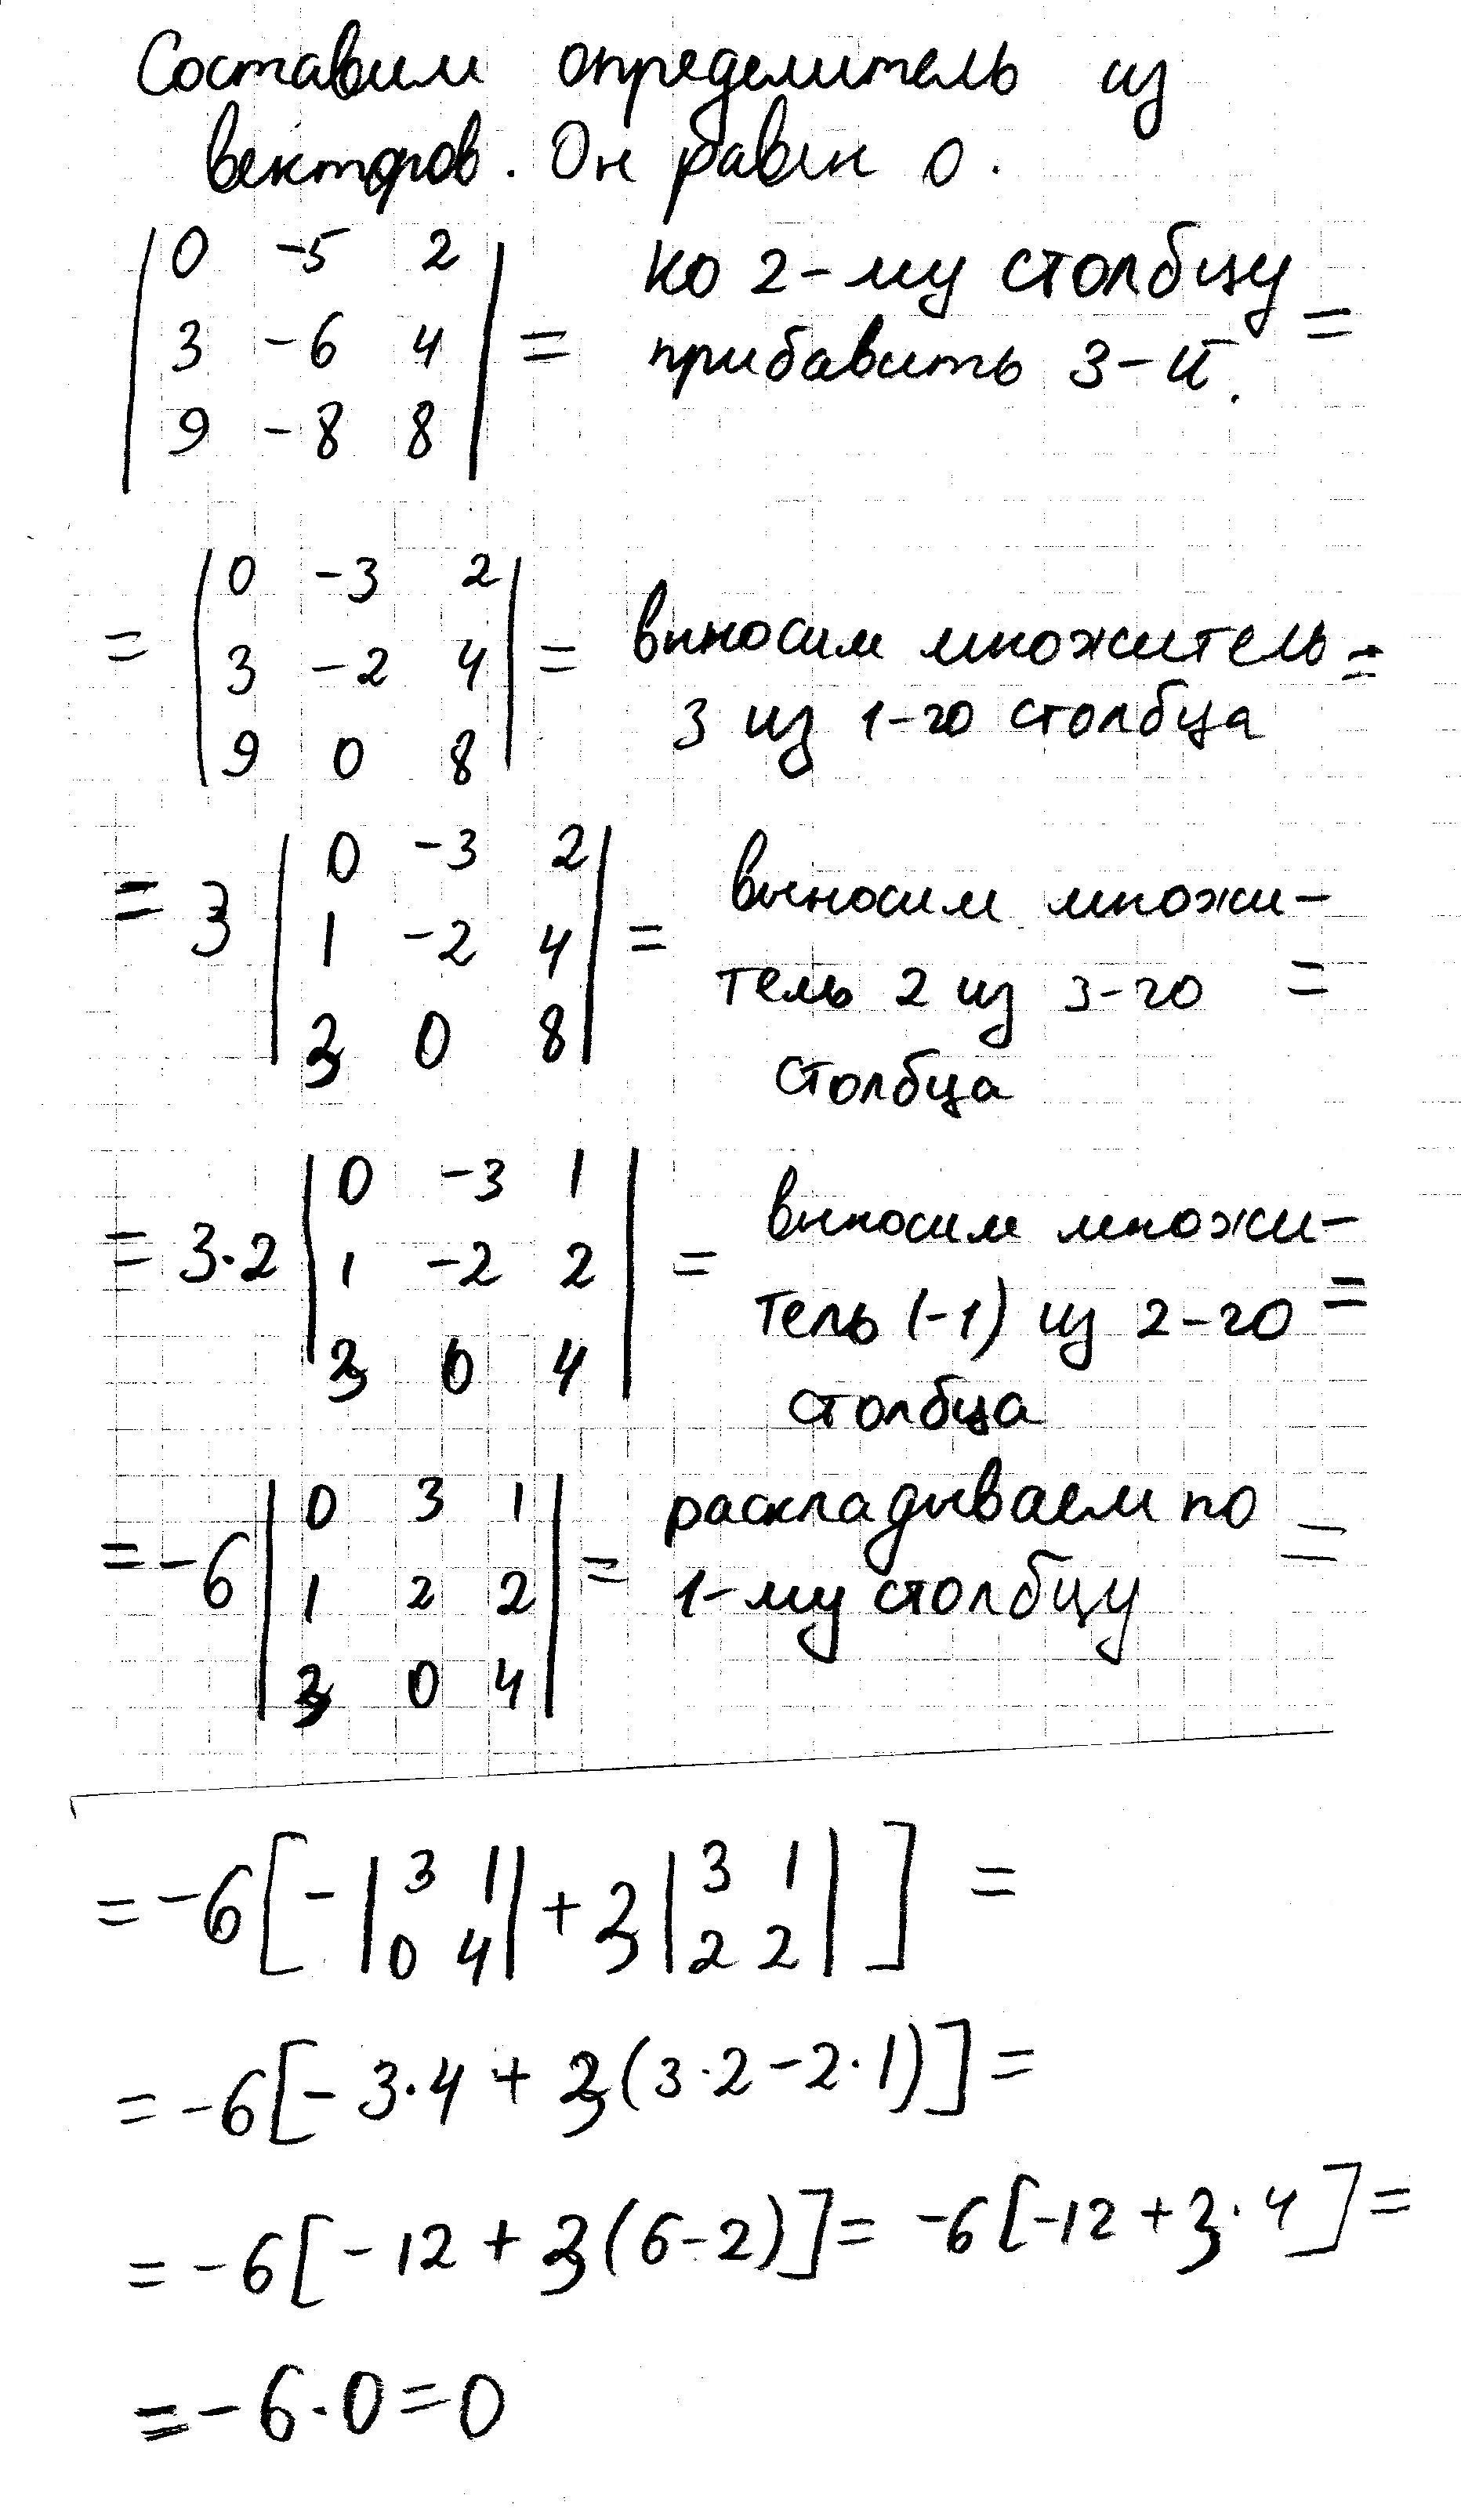 Составим определитель из
векторов. Он равен 0.
| 0 -5 2 |
| 3 -6 4 | = ко 2-му столбцу прибавить 3-й. =
| 9 -8 8 |
| 0 -3 2 |
= | 3 -2 4 | = выносим множитель =
| 9 0 8 | 3 из 1-го столбца
| 0 -3 2 |
= 3 | 1 -2 4 | = выносим множи-
| 3 0 8 | тель 2 из 3-го =
столбца
| 0 -3 1 |
= 3·2 | 1 -2 2 | = выносим множи-
| 3 0 4 | тель (-1) из 2-го =
столбца
| 0 3 1 | раскладываем по =
= -6 | 1 2 2 | = 1-му столбцу
| 3 0 4 |
= -6 [ - | 3 1 | + 3 | 3 1 | ] =
| 0 4 | | 2 2 |
= -6 [ -3·4 + 3(3·2 - 2·1) ] =
= -6 [ -12 + 3(6-2) ] = -6 [ -12 + 3·4 ] =
= -6·0 = 0